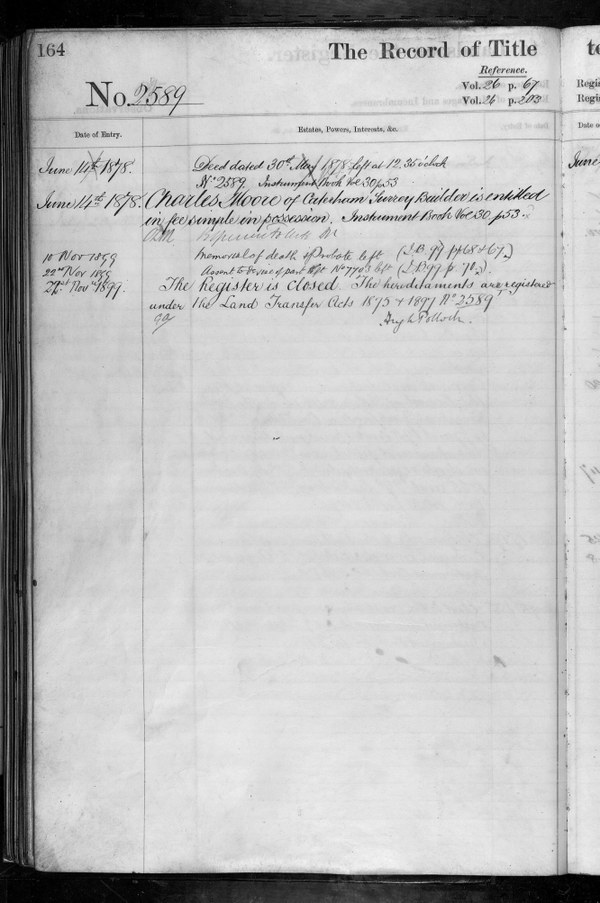 164
The Record of Title
Reference.
Vol. 26 p. 67
No. 2589
Vol. 26 p. 203
Date of Entry.
Estates, Powers, Interests, &c.
June 14th 1878.
Deed dated 30th May 1878 left at 12.35 o'clock
No 2589 Instrument Book Vol 30 p53
June 14th 1878
Charles Moore of Caterham Surrey Builder is entitled
in fee simple in possession. Instrument Book Vol 30 p53.
10 Nov 1899
Memorial of death & Probate left (I.B. 97 p 68 & 67.)
22nd Nov 1899
Assent to Devise of part of No 7703 left (I.B 97 p 70.)
Nov 1899.
The Register is closed. The hereditaments are registered
under the Land Transfer Acts 1875 & 1897 No 2589
Hugh Pollock.
te
Regi
Regi
Date o
June